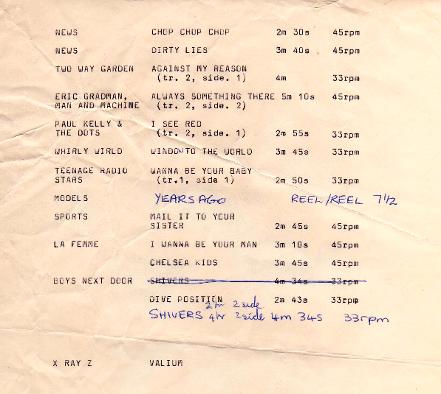 NEWS CHOP CHOP CHOP 2m 30s 45rpm
NEWS DIRTY LIES 3m 40s 45rpm
TWO WAY GARDEN AGAINST MY REASON
(tr. 2, side. 1) 4m 33rpm
ERIC GRADMAN, ALWAYS SOMETHING THERE 5m 10s 45rpm
MAN AND MACHINE (tr. 2, side. 2)
PAUL KELLY & I SEE RED
THE DOTS (tr. 2, side. 1) 2m 55s 33rpm
WHIRLY WIRLD WINDOW TO THE WORLD 3m 45s 33rpm
TEENAGE RADIO WANNA BE YOUR BABY
STARS (tr.1, side 1) 2m 50s 33rpm
MODELS YEARS AGO REEL/REEL 7 1/2
SPORTS MAIL IT TO YOUR
SISTER 2m 45s 45rpm
LA FEMME I WANNA BE YOUR MAN 3m 10s 45rpm
CHELSEA KIDS 3m 45s 45rpm
BOYS NEXT DOOR SHIVERS 4m 34s 33rpm
DIVE POSITION 2m 43s 33rpm
2tr 2side
SHIVERS 4tr 2side 4m 34s 33rpm
X RAY Z VALIUM